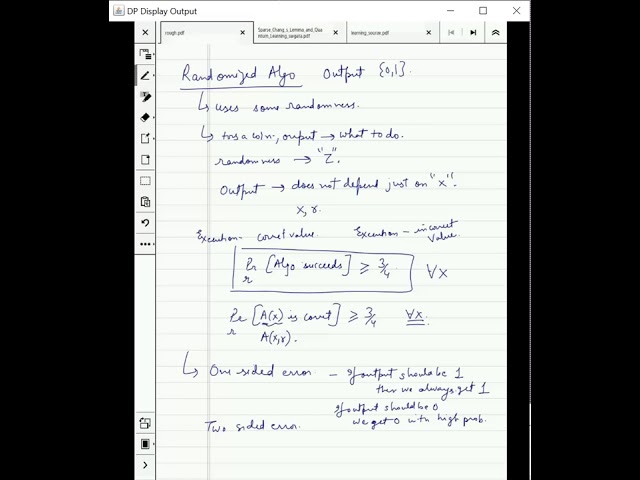 DP Display Output
rough.pdf
Sparse_Chang_s_Lemma_and_Qua
ntum_Learning_sargata.pdf
learning_source.pdf
Randomized Algo Output {0,1}.
uses some randomness.
toss a coin, output → what to do.
randomness → "Z".
Output → does not depend just on "x".
x, r.
Execution - correct value Execution - incorrect value.
Pr r [Algo succeeds] ≥ 3/4 ∀x
Pr r [A(x) is correct] ≥ 3/4 ∀x.
A(x,r).
One sided error - If output should be 1
then we always get 1
If output should be 0
we get 0 with high prob.
Two sided error.